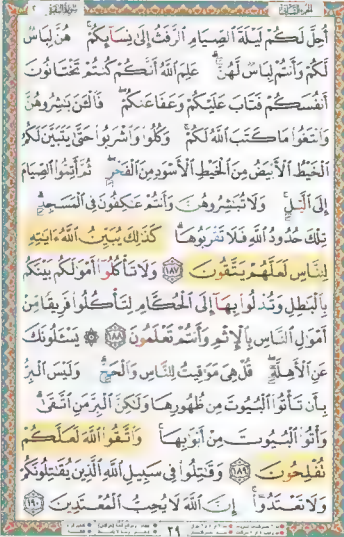 أُحِلَّ لَكُمْ لَيْلَةَ ٱلصِّيَامِ ٱلرَّفَثُ إِلَىٰ نِسَآئِكُمْ ۚ هُنَّ لِبَاسٌ
لَّكُمْ وَأَنتُمْ لِبَاسٌ لَّهُنَّ ۗ عَلِمَ ٱللَّهُ أَنَّكُمْ كُنتُمْ تَخْتَانُونَ
أَنفُسَكُمْ فَتَابَ عَلَيْكُمْ وَعَفَا عَنكُمْ ۖ فَٱلْـَٰٔنَ بَـٰشِرُوهُنَّ
وَٱبْتَغُوا۟ مَا كَتَبَ ٱللَّهُ لَكُمْ ۚ وَكُلُوا۟ وَٱشْرَبُوا۟ حَتَّىٰ يَتَبَيَّنَ لَكُمُ
ٱلْخَيْطُ ٱلْأَبْيَضُ مِنَ ٱلْخَيْطِ ٱلْأَسْوَدِ مِنَ ٱلْفَجْرِ ۖ ثُمَّ أَتِمُّوا۟ ٱلصِّيَامَ
إِلَى ٱلَّيْلِ ۚ وَلَا تُبَـٰشِرُوهُنَّ وَأَنتُمْ عَـٰكِفُونَ فِى ٱلْمَسَـٰجِدِ ۗ
تِلْكَ حُدُودُ ٱللَّهِ فَلَا تَقْرَبُوهَا ۗ كَذَٰلِكَ يُبَيِّنُ ٱللَّهُ ءَايَـٰتِهِۦ
لِلنَّاسِ لَعَلَّهُمْ يَتَّقُونَ ١٨٧ وَلَا تَأْكُلُوٓا۟ أَمْوَٰلَكُم بَيْنَكُم
بِٱلْبَـٰطِلِ وَتُدْلُوا۟ بِهَآ إِلَى ٱلْحُكَّامِ لِتَأْكُلُوا۟ فَرِيقًا مِّنْ
أَمْوَٰلِ ٱلنَّاسِ بِٱلْإِثْمِ وَأَنتُمْ تَعْلَمُونَ ١٨٨ ۞ يَسْـَٔلُونَكَ
عَنِ ٱلْأَهِلَّةِ ۖ قُلْ هِىَ مَوَٰقِيتُ لِلنَّاسِ وَٱلْحَجِّ ۗ وَلَيْسَ ٱلْبِرُّ
بِأَن تَأْتُوا۟ ٱلْبُيُوتَ مِن ظُهُورِهَا وَلَـٰكِنَّ ٱلْبِرَّ مَنِ ٱتَّقَىٰ ۗ
وَأْتُوا۟ ٱلْبُيُوتَ مِنْ أَبْوَٰبِهَا ۚ وَٱتَّقُوا۟ ٱللَّهَ لَعَلَّكُمْ
تُفْلِحُونَ ١٨٩ وَقَـٰتِلُوا۟ فِى سَبِيلِ ٱللَّهِ ٱلَّذِينَ يُقَـٰتِلُونَكُمْ
وَلَا تَعْتَدُوٓا۟ ۚ إِنَّ ٱللَّهَ لَا يُحِبُّ ٱلْمُعْتَدِينَ ١٩٠
٢٩